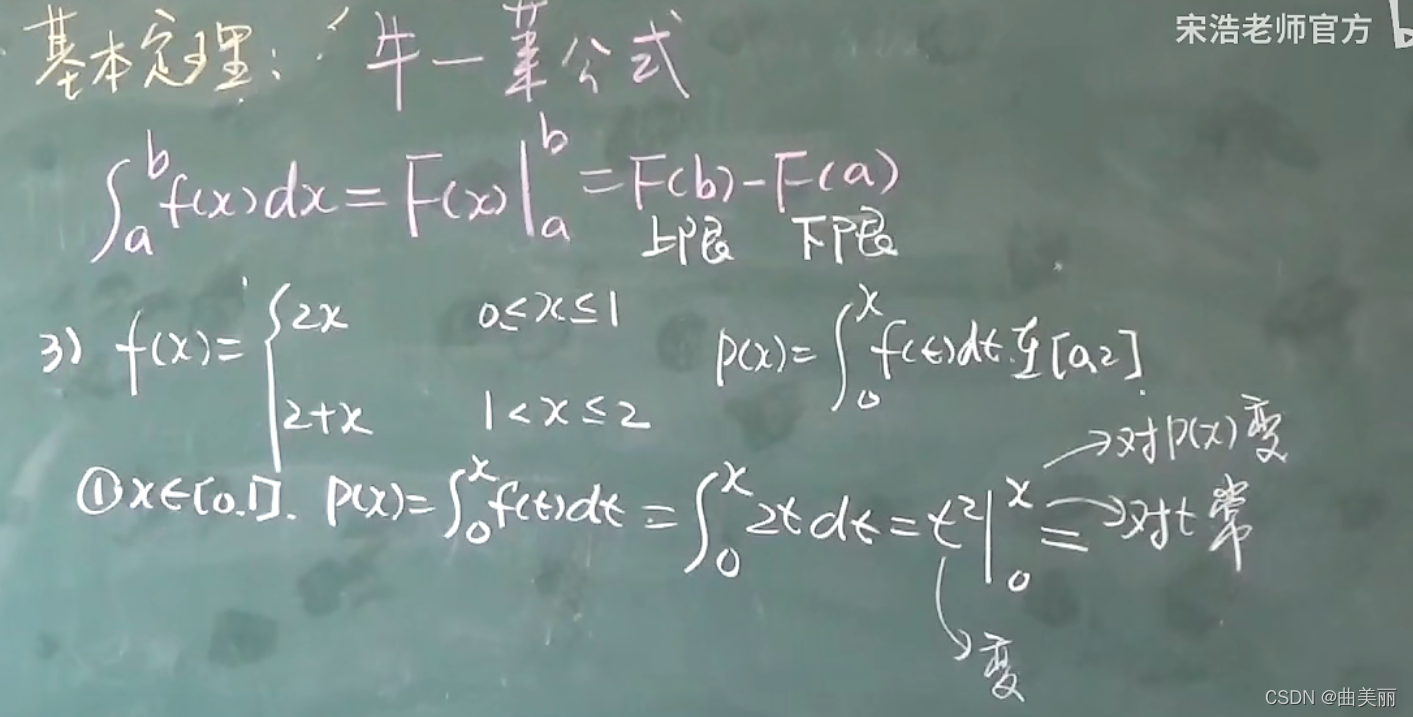 宋浩老师官方
基本定理: 牛-莱公式
∫_a^b f(x)dx=F(x)|_a^b=F(b)-F(a)
上限 下限
3) f(x)={2x 0≤x≤1
2+x 1<x≤2
p(x)=∫_0^x f(t)dt在[0,2].
①x∈[0.1]. p(x)=∫_0^x f(t)dt=∫_0^x 2tdt=t²|_0^x=
→对p(x)变
→对t常
变
CSDN @曲美丽